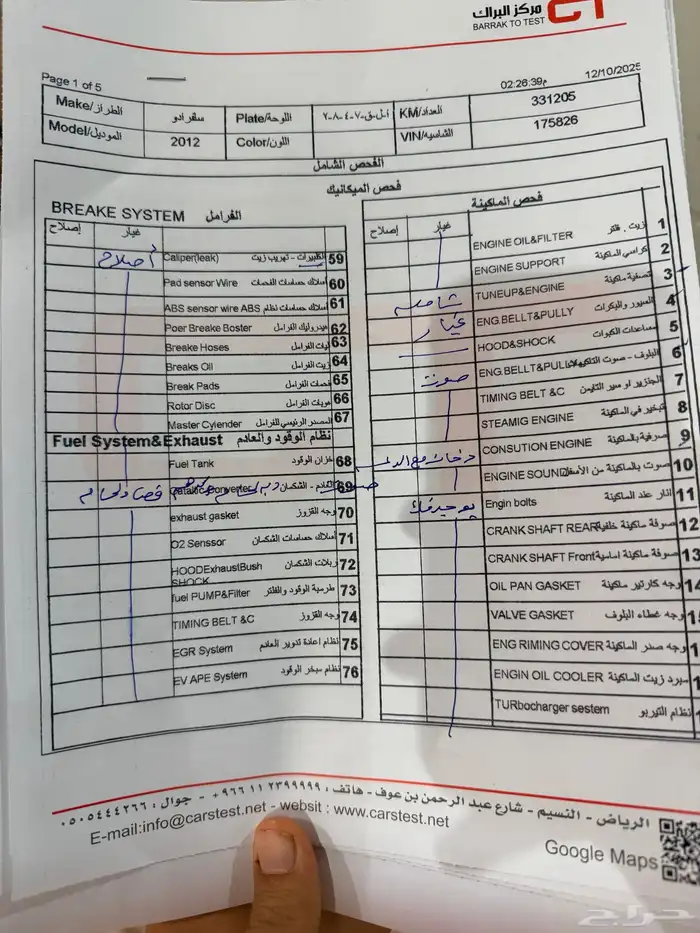 مركز البراك
BARRAK TO TEST
Page 1 of 5
02:26:39م 12/10/2025
Make/الطراز سلفرادو Plate/اللوحة ٢-٨-٤-٧-ا-ل-ق KM/العداد 331205
Model/الموديل 2012 Color/اللون VIN/الشاسيه 175826
الفحص الشامل
فحص الميكانيك
BREAKE SYSTEM الفرامل
إصلاح غيار
أصلاح Caliper(leak) الكليبرات - تهريب زيت 59
Pad sensor Wire أسلاك حساسات الفحمات 60
ABS sensor wire ABS أسلاك حساسات نظام 61
Poer Breake Boster هيدروليك الفرامل 62
Breake Hoses ليات الفرامل 63
Breaks Oil زيت الفرامل 64
Break Pads فحمات الفرامل 65
Rotor Disc هوبات الفرامل 66
Master Cylender المصدر الرئيسي للفرامل 67
Fuel System&Exhaust نظام الوقود والعادم
Fuel Tank خزان الوقود 68
Catalic Converter - الشكمان 69
exhaust gasket وجه القزوز 70
O2 Senssor أسلاك حساسات الشكمان 71
HOODExhaustBush SHOCK ربلات الشكمان 72
fuel PUMP&Filter طرمبة الوقود والفلتر 73
TIMING BELT &C وجه القزوز 74
EGR System نظام إعادة تدوير العادم 75
EV APE System نظام تبخر الوقود 76
فحص الماكينة
إصلاح غيار
ENGINE OIL&FILTER زيت . فلتر 1
ENGINE SUPPORT كراسي الماكينة 2
شامله TUNEUP&ENGINE تصفية ماكينة 3
غيار ENG.BELLT&PULLY السيور والبكرات 4
HOOD&SHOCK مساعدات الكبوت 5
صوت ENG.BELLT&PULLY البلوف - صوت التاكيهات 6
TIMING BELT &C الجنزير او سير التايمن 7
STEAMIG ENGINE تبخير في الماكينة 8
دخان مع CONSUTION ENGINE صرفية بالماكينة 9
ENGINE SOUND صوت بالماكينة من الأسفل 10
يوجد فك Engin bolts آثار عند الماكينة 11
CRANK SHAFT REAR صوفة ماكينة خلفية 12
CRANK SHAFT Front صوفة ماكينة امامية 13
OIL PAN GASKET وجه كارتير ماكينة 14
VALVE GASKET وجه غطاء البلوف
ENG RIMING COVER وجه صدر الماكينة
ENGIN OIL COOLER مبرد زيت الماكينة
TURbocharger sestem نظام التيربو
الرياض - النسيم - شارع عبد الرحمن بن عوف - هاتف : ٢٣٩٩٩٩٩ ١١ ٩٦٦+ - جوال : ٠٥٠٥٤٤٤٢٦٦
E-mail:info@carstest.net - websit : www.carstest.net
Google Maps
حراج